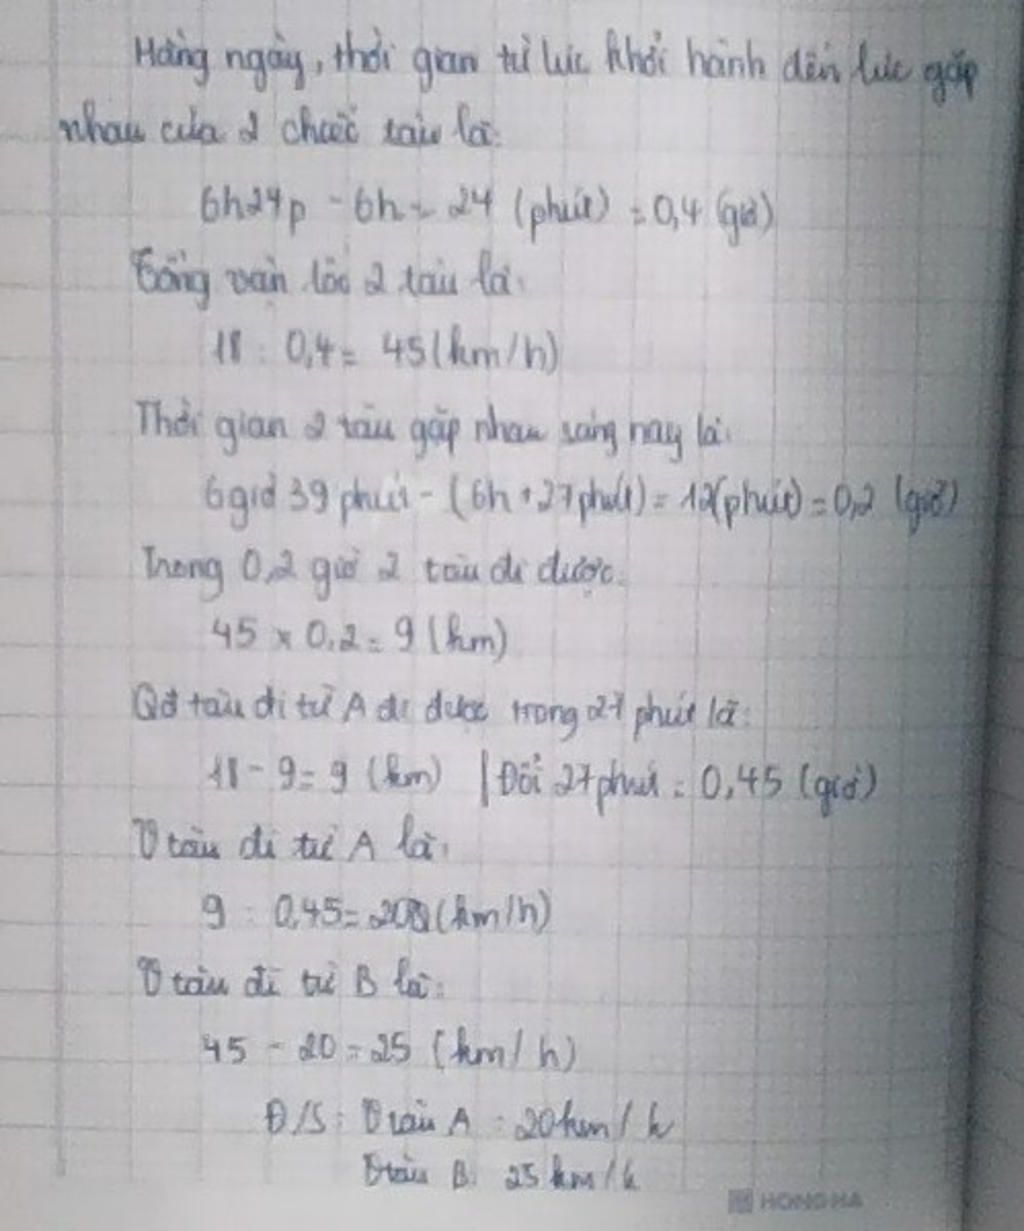 Hàng ngày, thời gian từ lúc khởi hành đến lúc gặp
nhau của 2 chiếc tàu là:
6h24p - 6h = 24 (phút) = 0,4 (giờ)
Tổng vận tốc 2 tàu là:
18 : 0,4 = 45 (km/h)
Thời gian 2 tàu gặp nhau sáng nay là:
6 giờ 39 phút - (6h + 27 phút) = 12 (phút) = 0,2 (giờ)
Trong 0,2 giờ 2 tàu đi được:
45 x 0,2 = 9 (km)
Qđ tàu đi từ A đi được trong 27 phút là:
18 - 9 = 9 (km) | Đổi 27 phút = 0,45 (giờ)
V tàu đi từ A là:
9 : 0,45 = 20 (km/h)
V tàu đi từ B là:
45 - 20 = 25 (km/h)
Đ/S: V tàu A : 20 km/h
V tàu B: 25 km/h
HONG HA